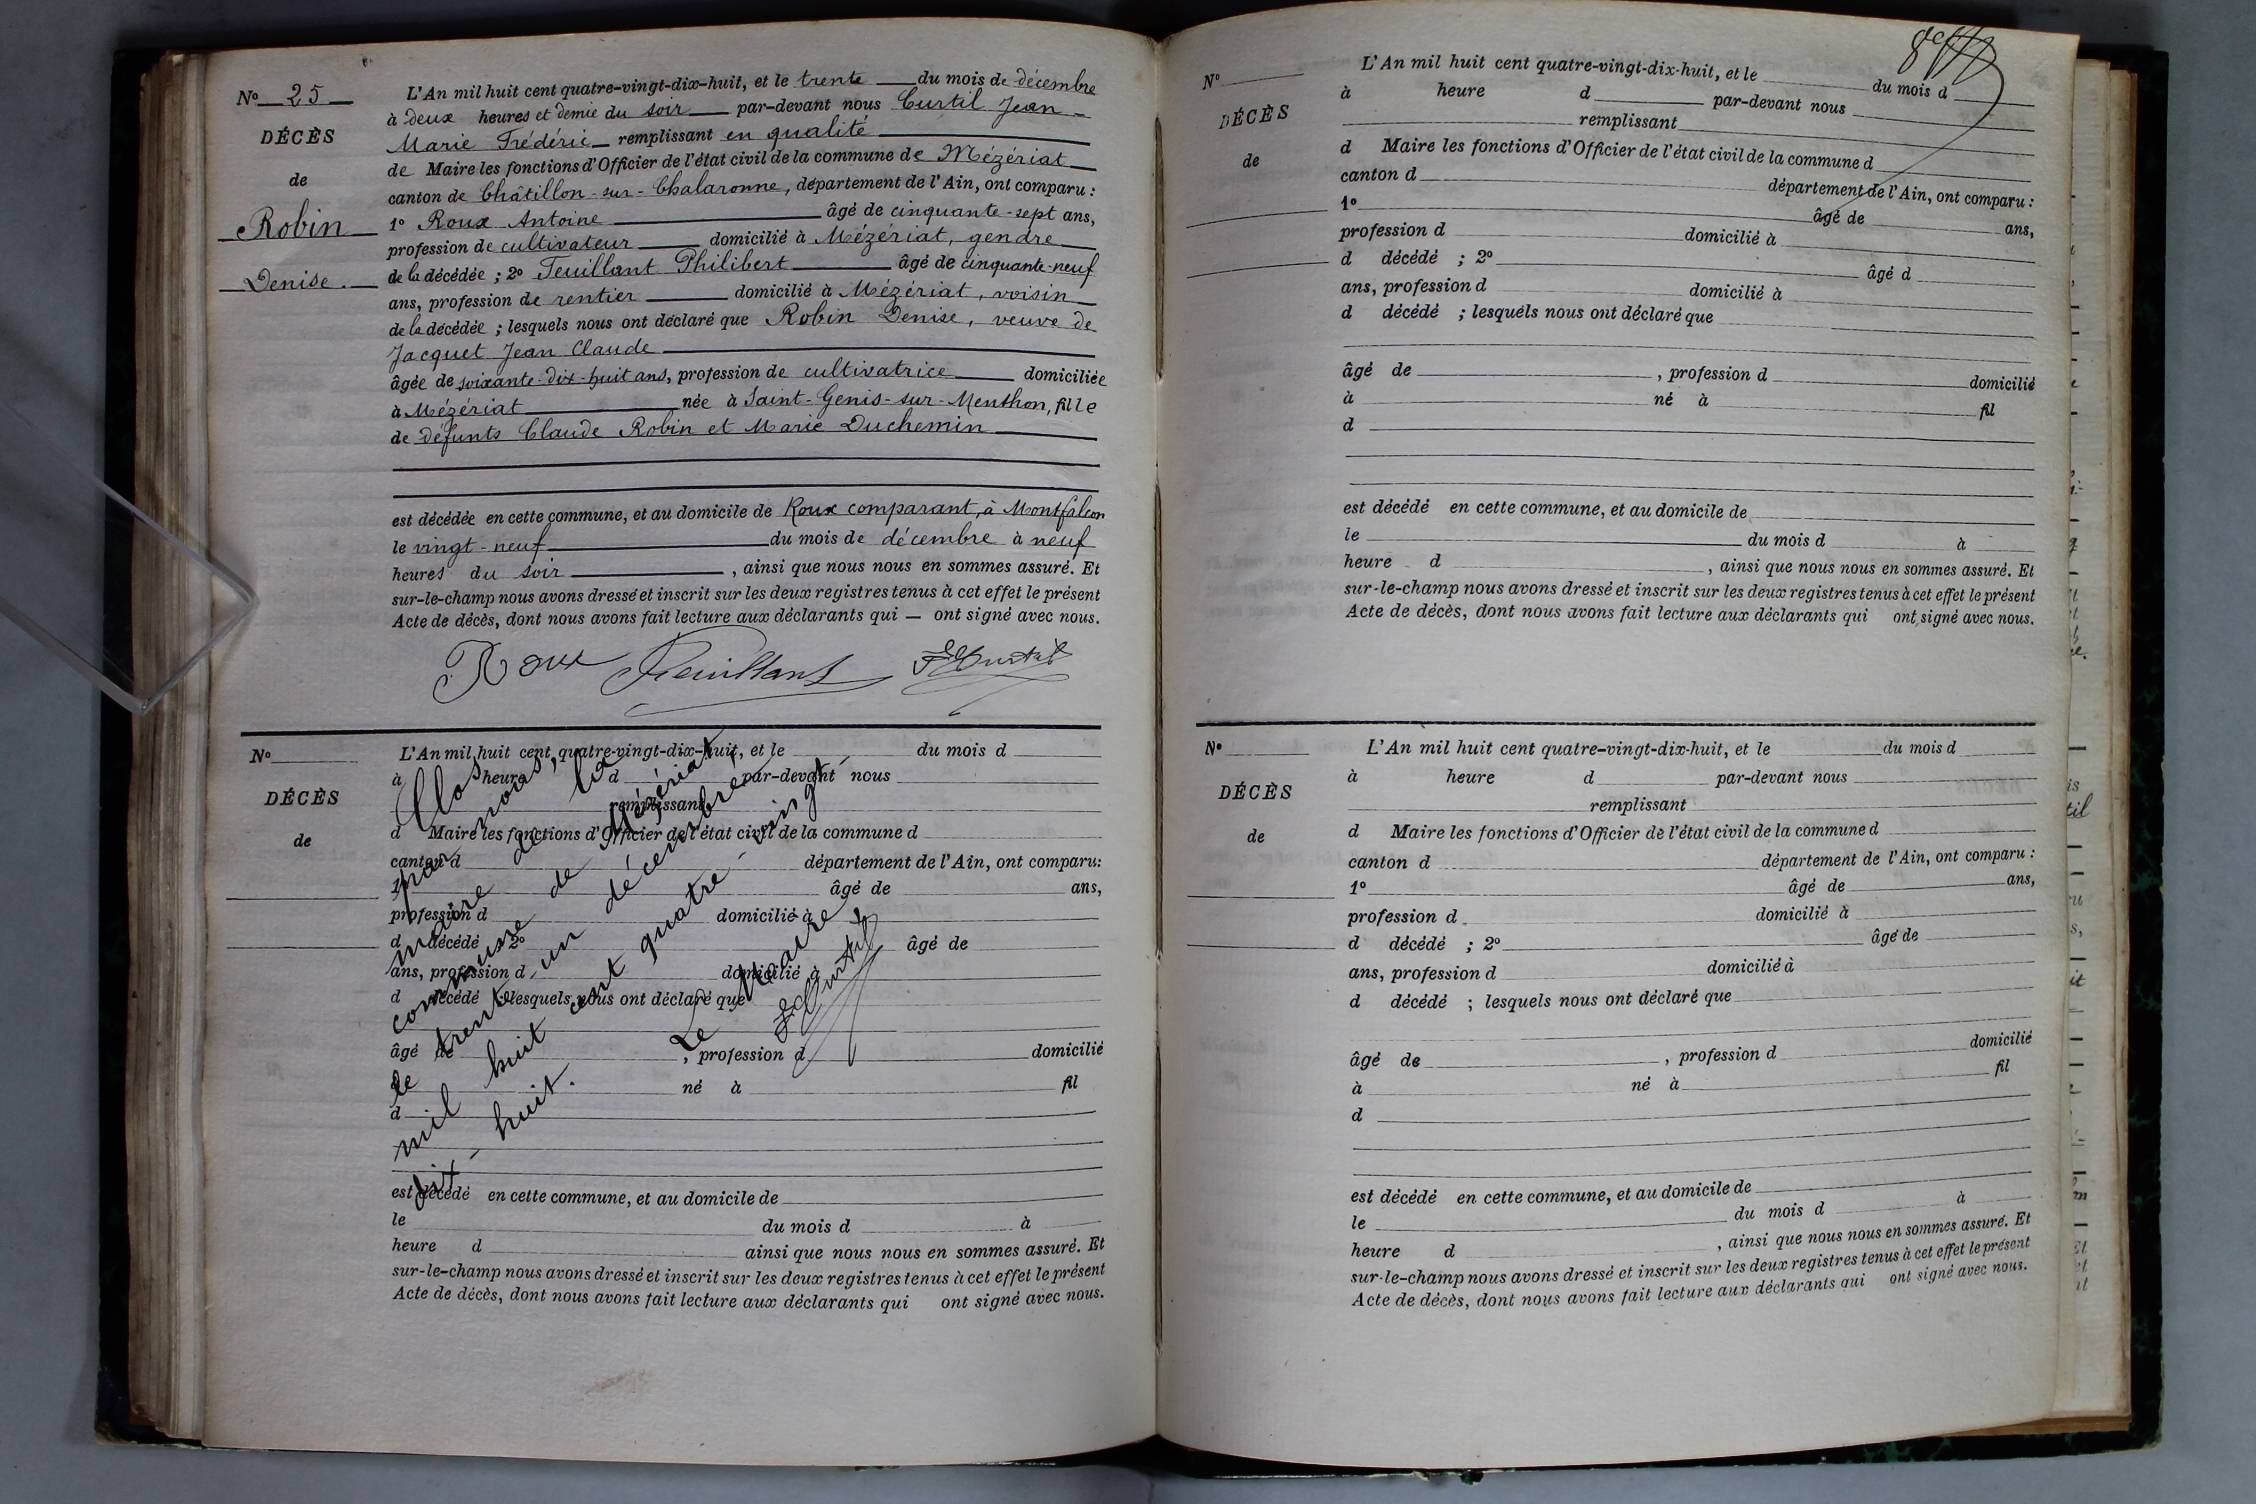 N° 25
DÉCÈS
de
Robin
Denise.
L'An mil huit cent quatre-vingt-dix-huit, et le trente du mois de décembre
à deux heures et demie du soir par-devant nous Curtil Jean-
Marie Frédéric remplissant en qualité
de Maire les fonctions d'Officier de l'état civil de la commune de Mézériat
canton de Châtillon-sur-Chalaronne, département de l'Ain, ont comparu :
1° Roux Antoine âgé de cinquante-sept ans,
profession de cultivateur domicilié à Mézériat, gendre
de la décédée ; 2° Feuillant Philibert âgé de cinquante-neuf
ans, profession de rentier domicilié à Mézériat, voisin
de la décédée ; lesquels nous ont déclaré que Robin Denise, veuve de
Jacquet Jean Claude
âgée de soixante-dix-huit ans, profession de cultivatrice domiciliée
à Mézériat née à Saint-Genis-sur-Menthon, fille
de défunts Claude Robin et Marie Duchemin
est décédée en cette commune, et au domicile de Roux comparant, à Montfalcon
le vingt-neuf du mois de décembre à neuf
heures du soir , ainsi que nous nous en sommes assuré. Et
sur-le-champ nous avons dressé et inscrit sur les deux registres tenus à cet effet le présent
Acte de décès, dont nous avons fait lecture aux déclarants qui — ont signé avec nous.
Roux Feuillant Curtil
N°
DÉCÈS
de
L'An mil huit cent quatre-vingt-dix-huit, et le du mois d
à heure d par-devant nous
remplissant
d Maire les fonctions d'Officier de l'état civil de la commune d
canton d département de l'Ain, ont comparu:
1° âgé de ans,
profession d domicilié à
d décédé 2° âgé de
ans, profession d domicilié à
d décédé ; lesquels nous ont déclaré que
âgé de , profession d domicilié
né à fil
d
est décédé en cette commune, et au domicile de
le du mois d à
heure d ainsi que nous nous en sommes assuré. Et
sur-le-champ nous avons dressé et inscrit sur les deux registres tenus à cet effet le présent
Acte de décès, dont nous avons fait lecture aux déclarants qui ont signé avec nous.
Clos
par nous,
maire de la
commune de Mézériat
le trente-un décembre
mil huit cent quatre-vingt-
dix-huit.
Le Maire
Curtil
N°
DÉCÈS
de
L'An mil huit cent quatre-vingt-dix-huit, et le du mois d
à heure d par-devant nous
remplissant
d Maire les fonctions d'Officier de l'état civil de la commune d
canton d département de l'Ain, ont comparu :
1° âgé de ans,
profession d domicilié à
d décédé ; 2° âgé d
ans, profession d domicilié à
d décédé ; lesquels nous ont déclaré que
âgé de , profession d domicilié
à né à fil
d
est décédé en cette commune, et au domicile de
le du mois d à
heure d , ainsi que nous nous en sommes assuré. Et
sur-le-champ nous avons dressé et inscrit sur les deux registres tenus à cet effet le présent
Acte de décès, dont nous avons fait lecture aux déclarants qui ont signé avec nous.
N°
DÉCÈS
de
L'An mil huit cent quatre-vingt-dix-huit, et le du mois d
à heure d par-devant nous
remplissant
d Maire les fonctions d'Officier de l'état civil de la commune d
canton d département de l'Ain, ont comparu :
1° âgé de ans,
profession d domicilié à
d décédé ; 2° âgé de
ans, profession d domicilié à
d décédé ; lesquels nous ont déclaré que
âgé de , profession d domicilié
à né à fil
d
est décédé en cette commune, et au domicile de
le du mois d à
heure d , ainsi que nous nous en sommes assuré. Et
sur-le-champ nous avons dressé et inscrit sur les deux registres tenus à cet effet le présent
Acte de décès, dont nous avons fait lecture aux déclarants qui ont signé avec nous.